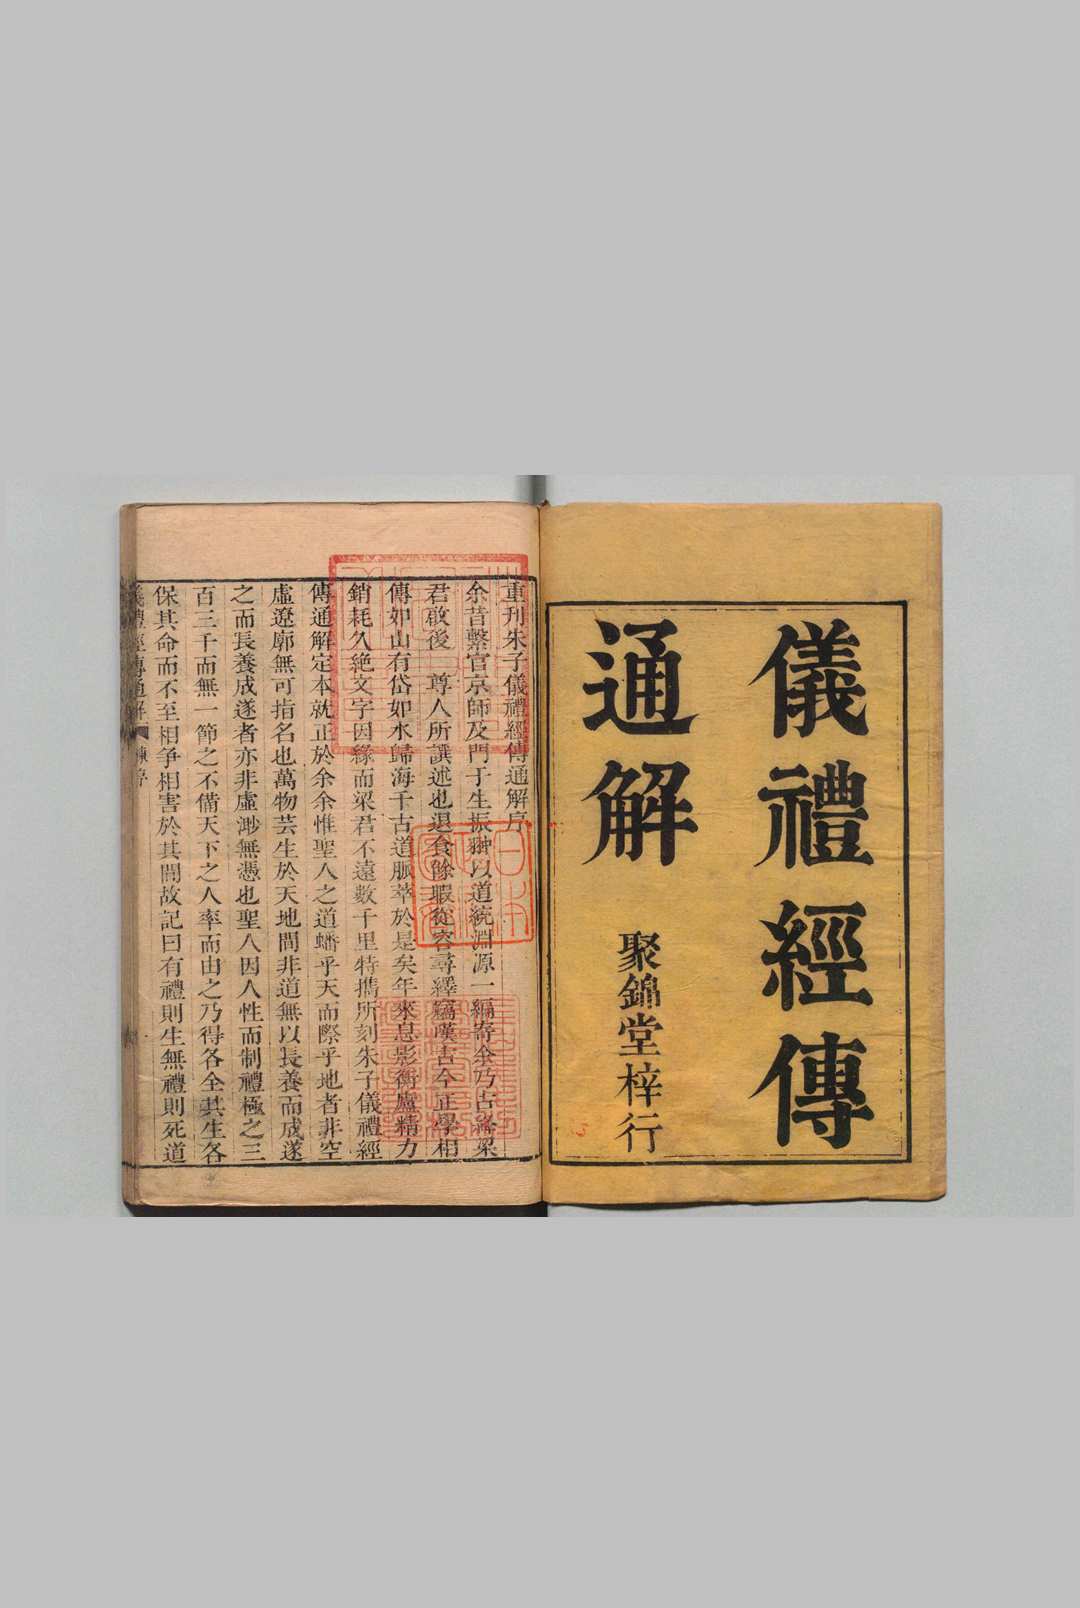 儀禮經傳
通解
聚錦堂梓行
重刊朱子儀禮經傳通解序
余昔繫官京師及門于生振翀以道統淵源一編寄余乃古絳梁
君啟後 尊人所譔述也退食餘暇從容尋繹竊嘆古今正學相
傳如山有岱如水歸海千古道脈萃於是矣年來息影衡廬精力
銷耗久絶文字因緣而梁君不遠數千里特攜所刻朱子儀禮經
傳通解定本就正於余余惟聖人之道蟠乎天而際乎地者非空
虛遼廓無可指名也萬物芸生於天地間非道無以長養而成遂
之而長養成遂者亦非虛渺無憑也聖人因人性而制禮極之三
百三千而無一節之不備天下之人率而由之乃得各全其生各
保其命而不至相爭相害於其間故記曰有禮則生無禮則死道
儀禮經傳通解 序